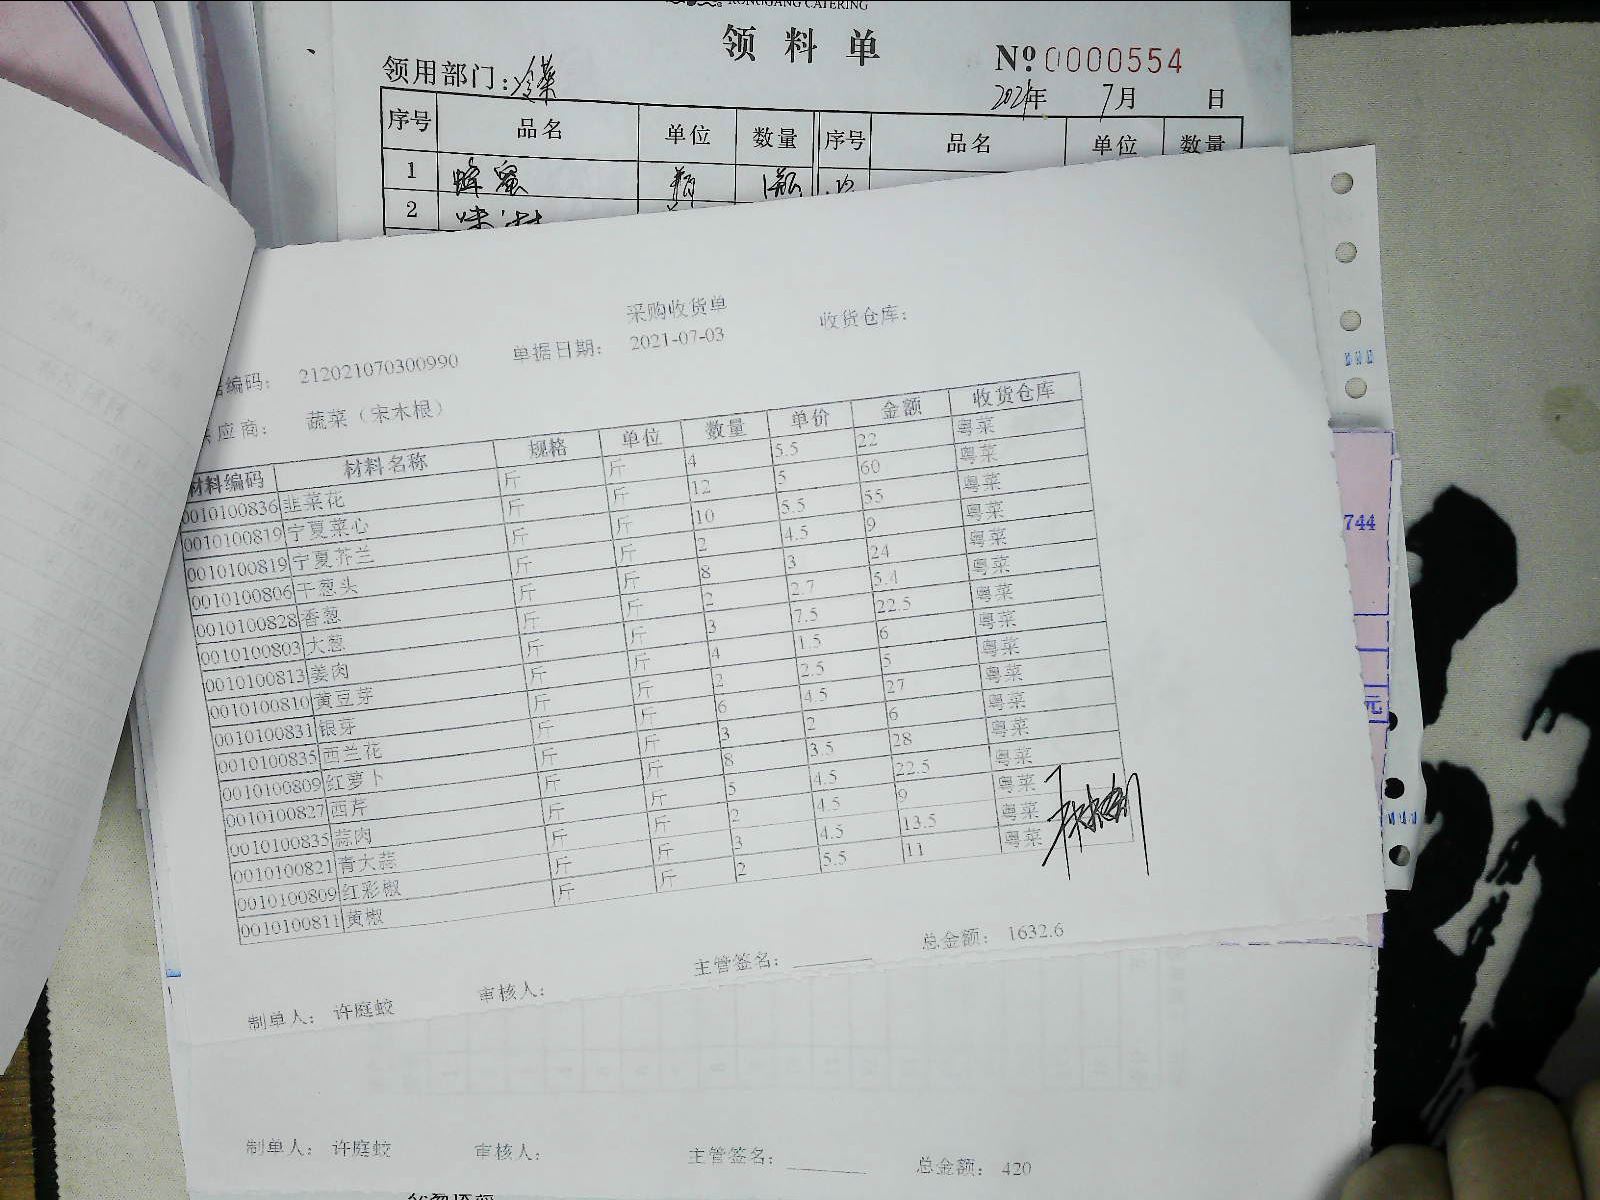 RONGGANG CATERING
领料单
№0000554
领用部门:冷菜
2021年 7月 日
序号 品名 单位 数量 序号 品名 单位 数量
1 蜂蜜 瓶 1瓶
2
采购收货单
编码: 212021070300990 单据日期: 2021-07-03 收货仓库:
应商: 蔬菜(宋木根)
材料编码 材料名称 规格 单位 数量 单价 金额 收货仓库
0010100836 韭菜花 斤 斤 4 5.5 22 粤菜
0010100819 宁夏菜心 斤 斤 12 5 60 粤菜
0010100819 宁夏芥兰 斤 斤 10 5.5 55 粤菜
0010100806 干葱头 斤 斤 2 4.5 9 粤菜
0010100828 香葱 斤 斤 8 3 24 粤菜
0010100803 大葱 斤 斤 2 2.7 5.4 粤菜
0010100813 姜肉 斤 斤 3 7.5 22.5 粤菜
0010100810 黄豆芽 斤 斤 4 1.5 6 粤菜
0010100831 银芽 斤 斤 2 2.5 5 粤菜
0010100835 西兰花 斤 斤 6 4.5 27 粤菜
0010100809 红萝卜 斤 斤 3 2 6 粤菜
0010100827 西芹 斤 斤 8 3.5 28 粤菜
0010100835 蒜肉 斤 斤 5 4.5 22.5 粤菜
0010100821 青大蒜 斤 斤 2 4.5 9 粤菜
0010100809 红彩椒 斤 斤 3 4.5 13.5 粤菜
0010100811 黄椒 斤 斤 2 5.5 11 粤菜
制单人: 许庭蛟 审核人: 主管签名: 总金额: 1632.6
744
元
制单人: 许庭蛟 审核人: 主管签名: 总金额: 420